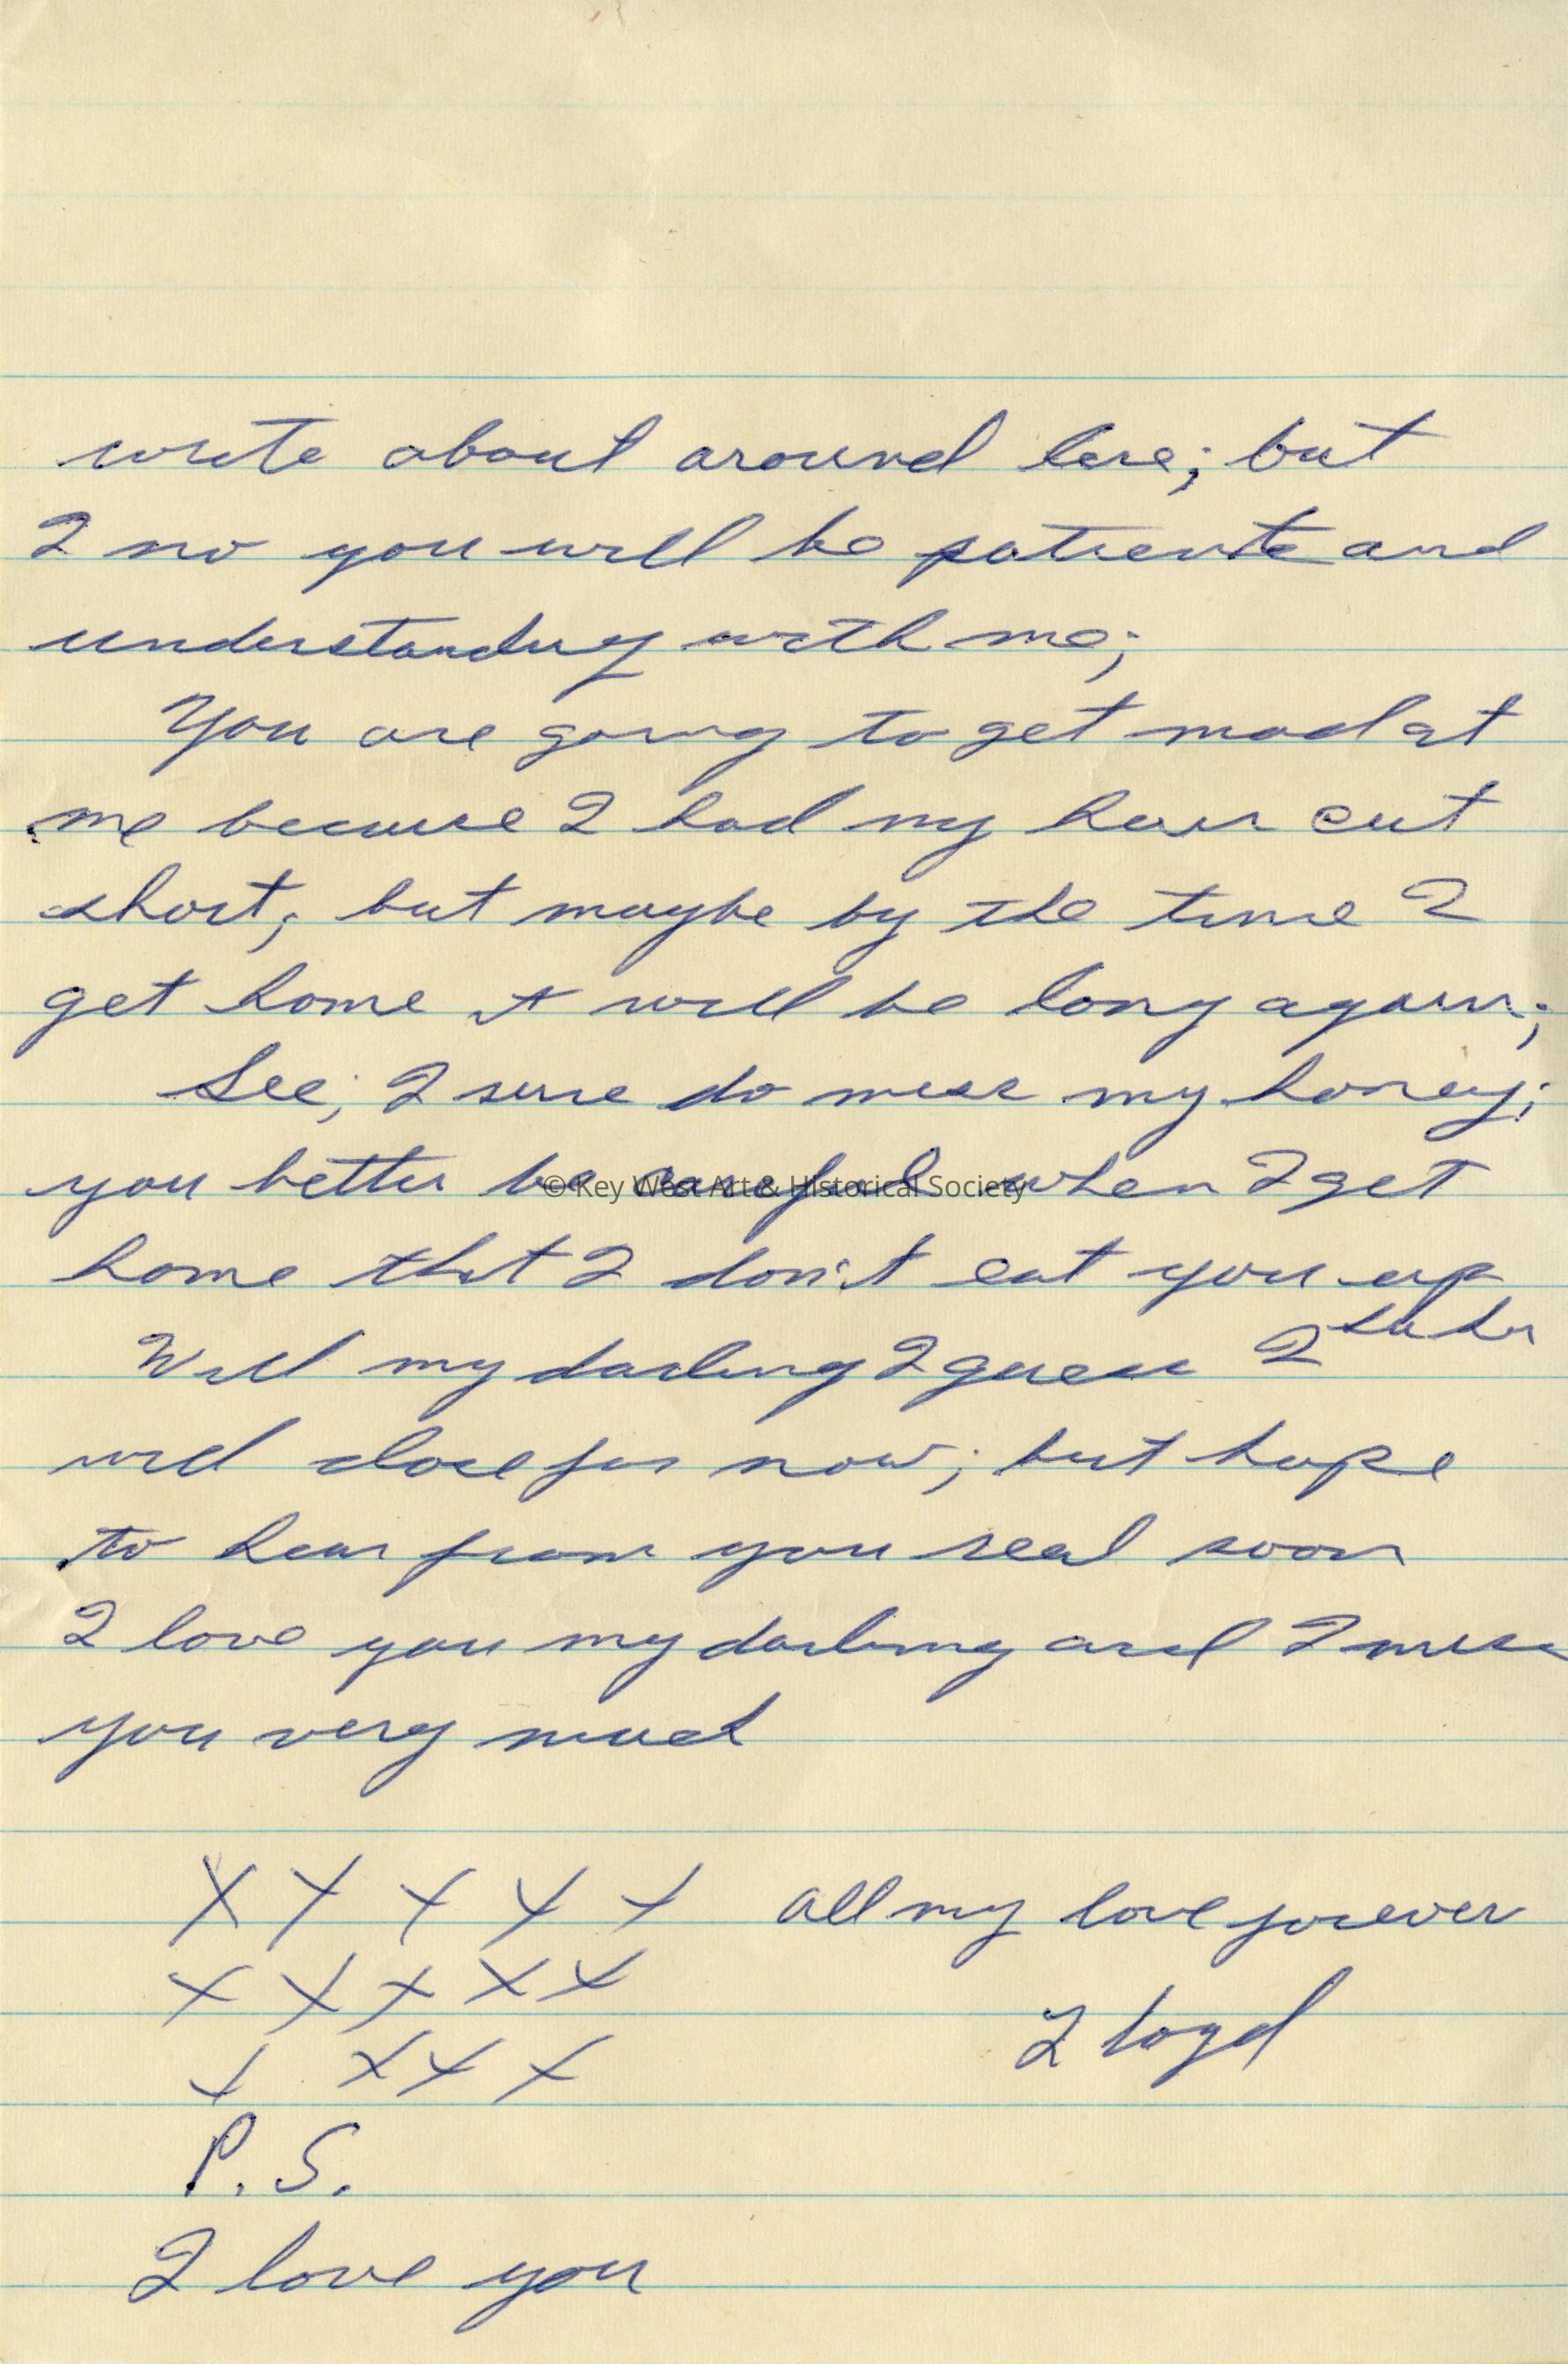 write about around here; but
I no you will be patiente and
understanding with me;
You are going to get mad at
me because I had my hair cut
short; but maybe by the time I
get home it will be long again;
See; I sure do miss my honey;
you better be careful when I get
© Key West Art & Historical Society
home that I don't eat you up
ha ha
Well my darling I guess I
will close for now; but hope
to hear from you real soon
I love you my darling and I miss
you very much
X X X X X all my love forever
X X X X X
Lloyd
X X X X
P.S.
I love you